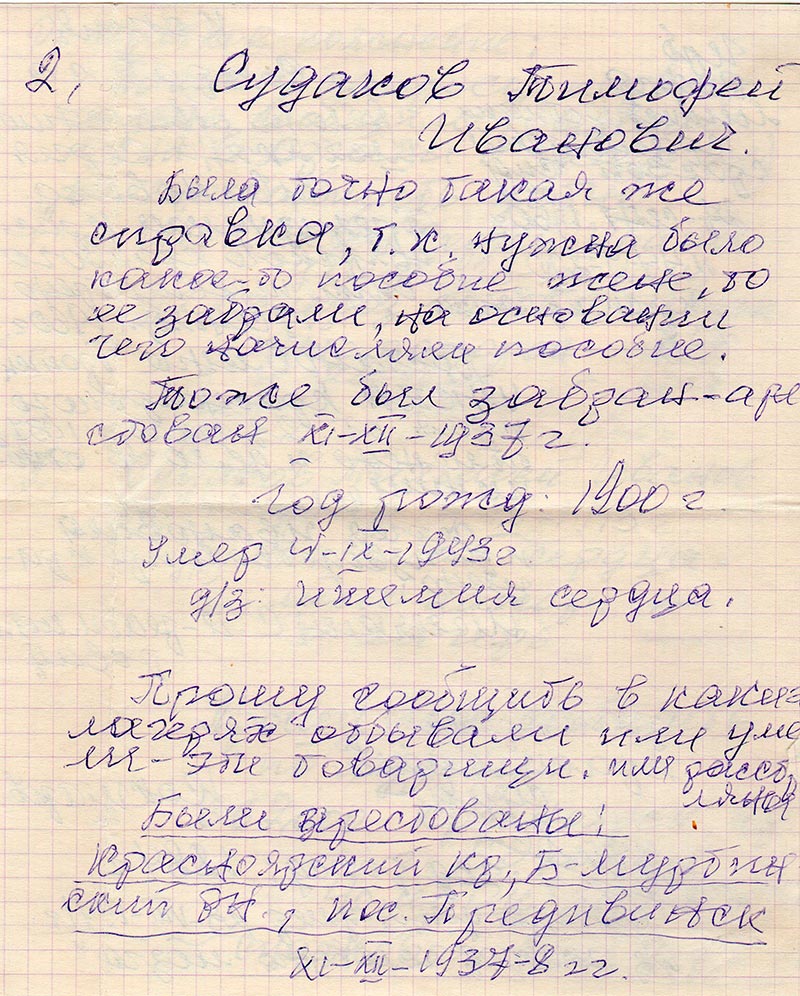 2, Судаков Тимофей
Иванович.
Была точно такая же
справка, т.к. нужна было
какое-то пособие жене, то
ее забрали, на основании
чего начисляли пособие.
Тоже был забран-аре
стован XI-XII-1937 г.
Год рожд: 1900 г.
Умер VI-IX-1943 г.
д/з: ишемия сердца.
Прошу сообщить в каких
лагерях отбывали или уме
ли - эти товарищи. или расст
ляны
Были арестованы:
Красноярский кр, Б-Муртин
ский рн., пос. Предивинск
XI-XII-1937-8 гг.